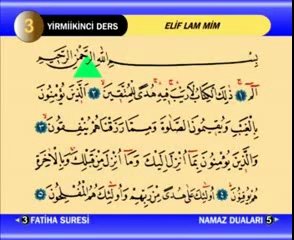 3 YİRMİİKİNCİ DERS ELİF LAM MİM
بِسْمِ اللهِ الرَّحْمٰنِ الرَّحِيمِ
الٓمٓ ﴿١﴾ ذٰلِكَ الْكِتَابُ لَا رَيْبَ فِيهِ هُدًى لِلْمُتَّقِينَ ﴿٢﴾ اَلَّذِينَ يُؤْمِنُونَ
بِالْغَيْبِ وَيُقِيمُونَ الصَّلٰوةَ وَمِمَّا رَزَقْنَاهُمْ يُنْفِقُونَ ﴿٣﴾
وَالَّذِينَ يُؤْمِنُونَ بِمَا اُنْزِلَ اِلَيْكَ وَمَا اُنْزِلَ مِنْ قَبْلِكَ وَبِالْاٰخِرَةِ
هُمْ يُوقِنُونَ ﴿٤﴾ اُولٰئِكَ عَلٰى هُدًى مِنْ رَبِّهِمْ وَاُولٰئِكَ هُمُ الْمُفْلِحُونَ ﴿٥﴾
3 FATİHA SURESİ NAMAZ DUALARI 5